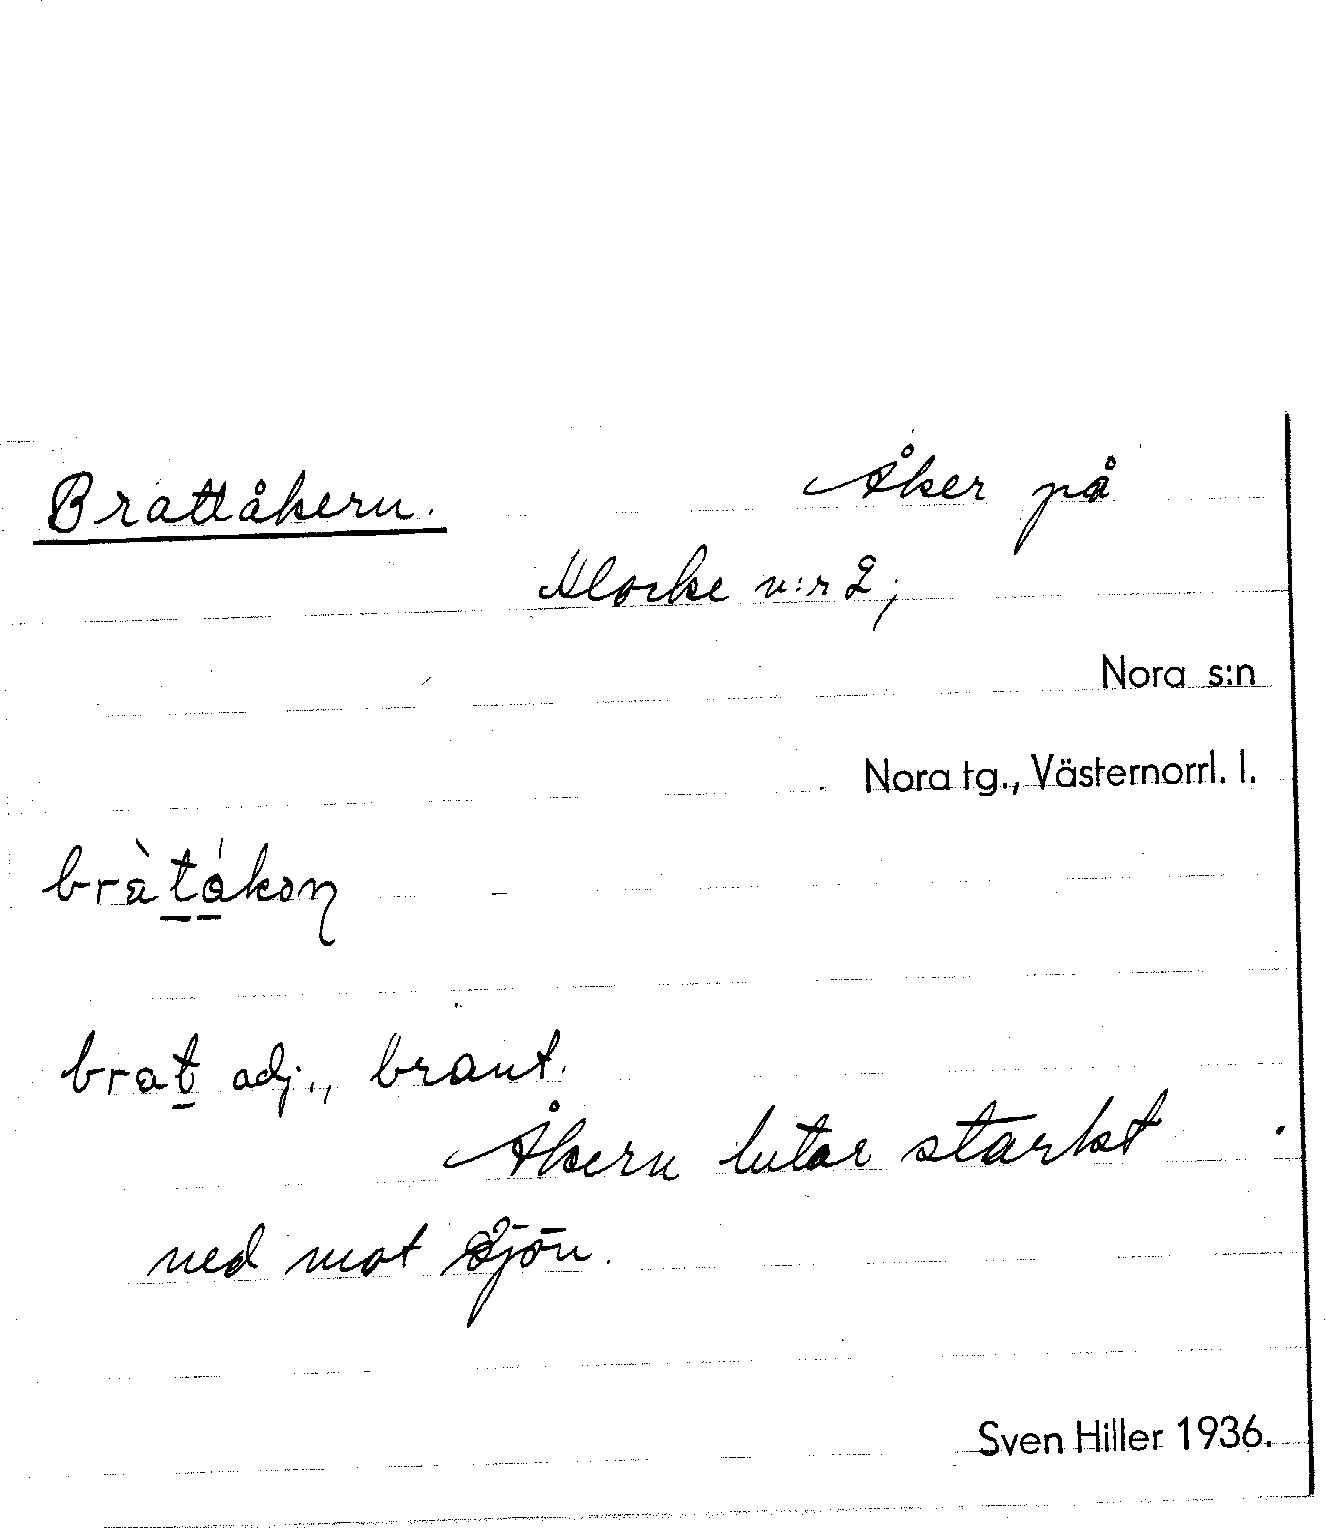 Brattåkern. Åker på
Klocke n:r 2;
Nora s:n
Nora tg., Västernorrl. l.
bràt̲å̲kəɳ
brat̲ adj., brant.
Åkern lutar starkt
ned mot sjön.
Sven Hiller 1936.